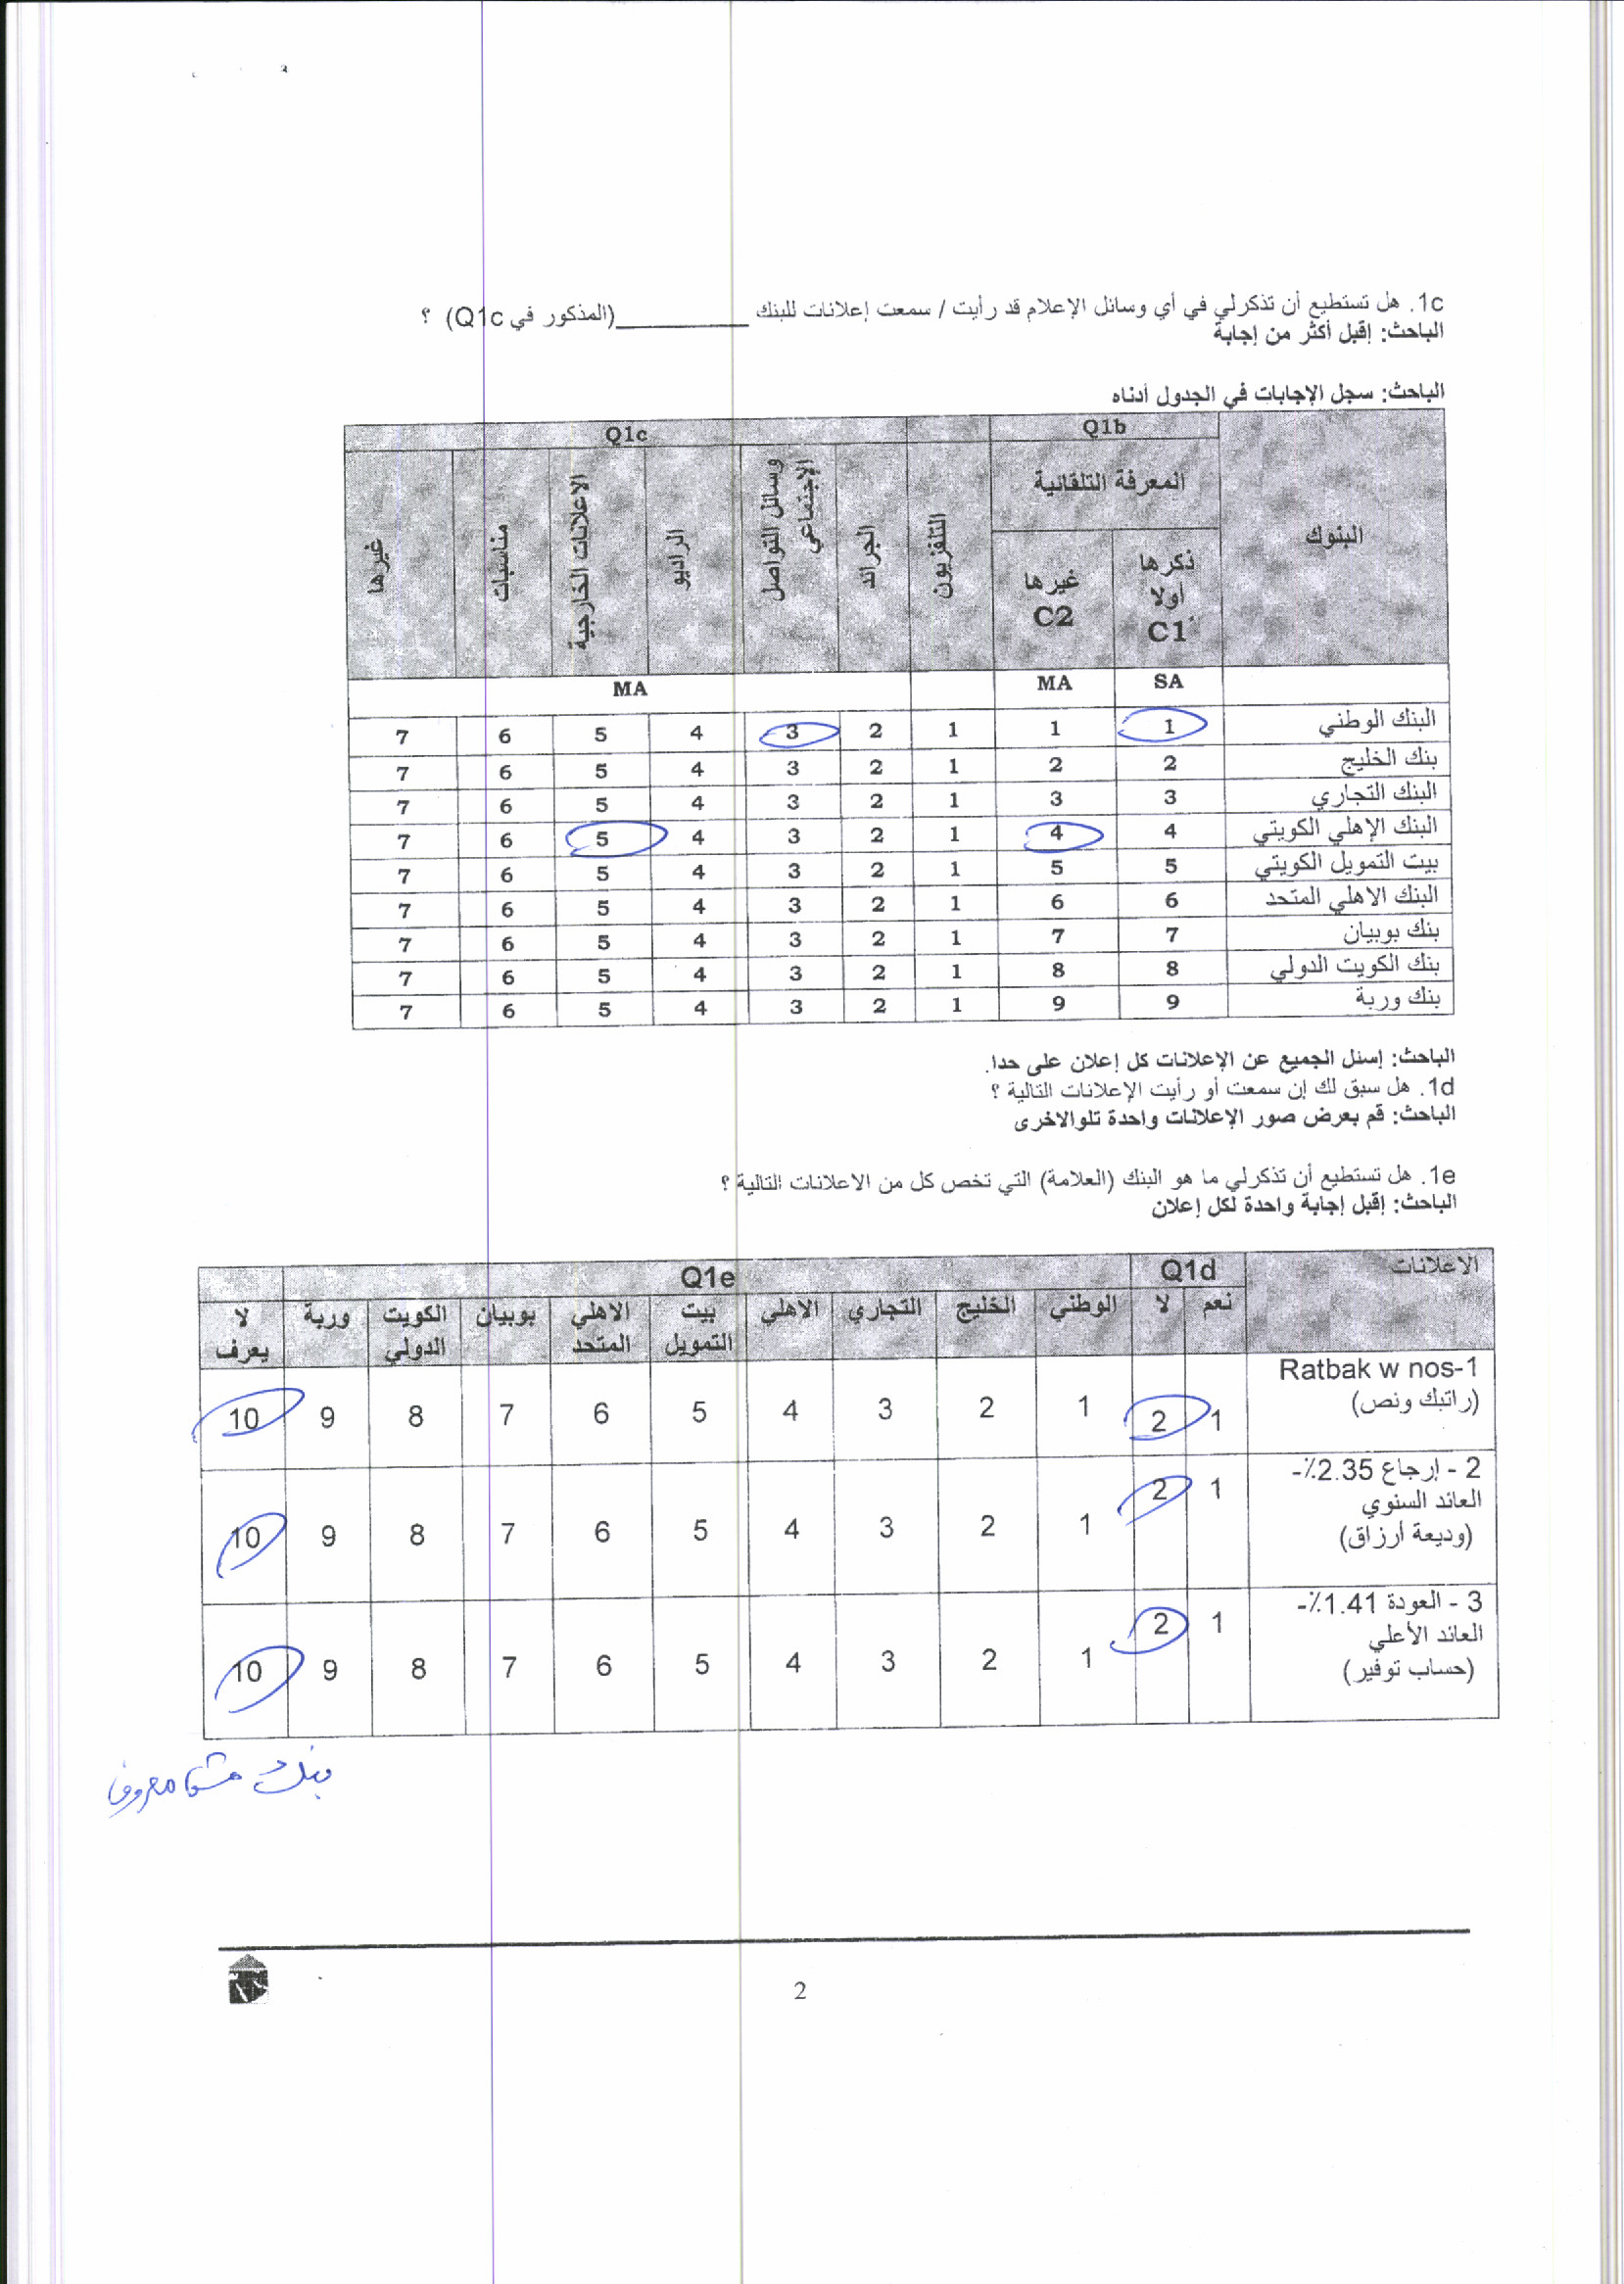 1c. هل تستطيع أن تذكرلي في أي وسائل الإعلام قد رأيت / سمعت إعلانات للبنك __________(المذكور في Q1c) ؟
الباحث: إقبل أكثر من إجابة
الباحث: سجل الإجابات في الجدول أدناه
البنوك Q1b Q1c
المعرفة التلقائية
ذكرها أولا C1 غيرها C2 التلفزيون الجرائد وسائل التواصل الإجتماعي الراديو الاعلانات الخارجية مناسبات غيرها
SA MA MA
البنك الوطني 1 1 1 2 3 4 5 6 7
بنك الخليج 2 2 1 2 3 4 5 6 7
البنك التجاري 3 3 1 2 3 4 5 6 7
البنك الإهلي الكويتي 4 4 1 2 3 4 5 6 7
بيت التمويل الكويتي 5 5 1 2 3 4 5 6 7
البنك الاهلي المتحد 6 6 1 2 3 4 5 6 7
بنك بوبيان 7 7 1 2 3 4 5 6 7
بنك الكويت الدولي 8 8 1 2 3 4 5 6 7
بنك وربة 9 9 1 2 3 4 5 6 7
الباحث: إسئل الجميع عن الإعلانات كل إعلان على حدا.
1d. هل سبق لك إن سمعت أو رأيت الإعلانات التالية ؟
الباحث: قم بعرض صور الإعلانات واحدة تلوالاخرى
1e. هل تستطيع أن تذكرلي ما هو البنك (العلامة) التي تخص كل من الاعلانات التالية ؟
الباحث: إقبل إجابة واحدة لكل إعلان
الاعلانات Q1d Q1e
نعم لا الوطني الخليج التجاري الاهلي بيت التمويل الاهلي المتحد بوبيان الكويت الدولي وربة لا يعرف
Ratbak w nos-1
(راتبك ونص)
1 2 1 2 3 4 5 6 7 8 9 10
2 - إرجاع 2.35٪-
العائد السنوي
(وديعة أرزاق)
1 2 1 2 3 4 5 6 7 8 9 10
3 - العودة 1.41٪-
العائد الأعلي
(حساب توفير)
1 2 1 2 3 4 5 6 7 8 9 10
بنك مش معروف
2